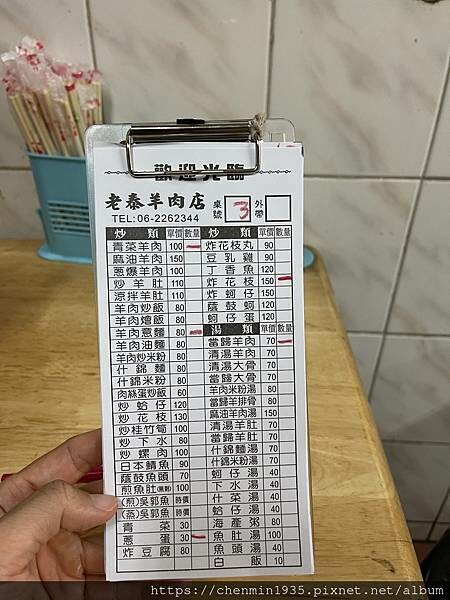 歡迎光臨
老泰羊肉店
TEL:06-2262344
桌號 3 外帶
炒類 單價 數量
青菜羊肉 100
麻油羊肉 150
蔥爆羊肉 100
炒羊肚 110
涼拌羊肚 110
羊肉炒飯 80
羊肉燴飯 80
羊肉意麵 80
羊肉油麵 80
羊肉炒米粉 80
什錦麵 80
什錦米粉 80
肉絲蛋炒飯 60
炒蛤仔 120
炒花枝 130
炒桂竹筍 100
炒下水 80
炒螺肉 100
日本鯖魚 90
蔭鼓魚頭 70
煎魚肚(無刺) 100
(煎)吳郭魚 時價
(蒸)吳郭魚 時價
青菜 30
蔥蛋 30
炸豆腐 80
炸花枝丸 90
豆乳雞 90
丁香魚 120
炸花枝 150
炸蚵仔 150
蔭鼓蚵 120
蚵仔蛋 120
湯類 單價 數量
當歸羊肉 70
清湯羊肉 70
清湯大骨 70
當歸大骨 70
羊肉米粉湯 80
當歸羊排 80
麻油羊肉湯 150
清湯羊肚 110
當歸羊肚 110
什錦麵湯 70
什錦米粉湯 70
蚵仔湯 40
下水湯 40
什菜湯 40
蛤仔湯 40
海產粥 80
魚肚湯 100
魚頭湯 40
白飯 10
https://chenmin1935.pixnet.net/album